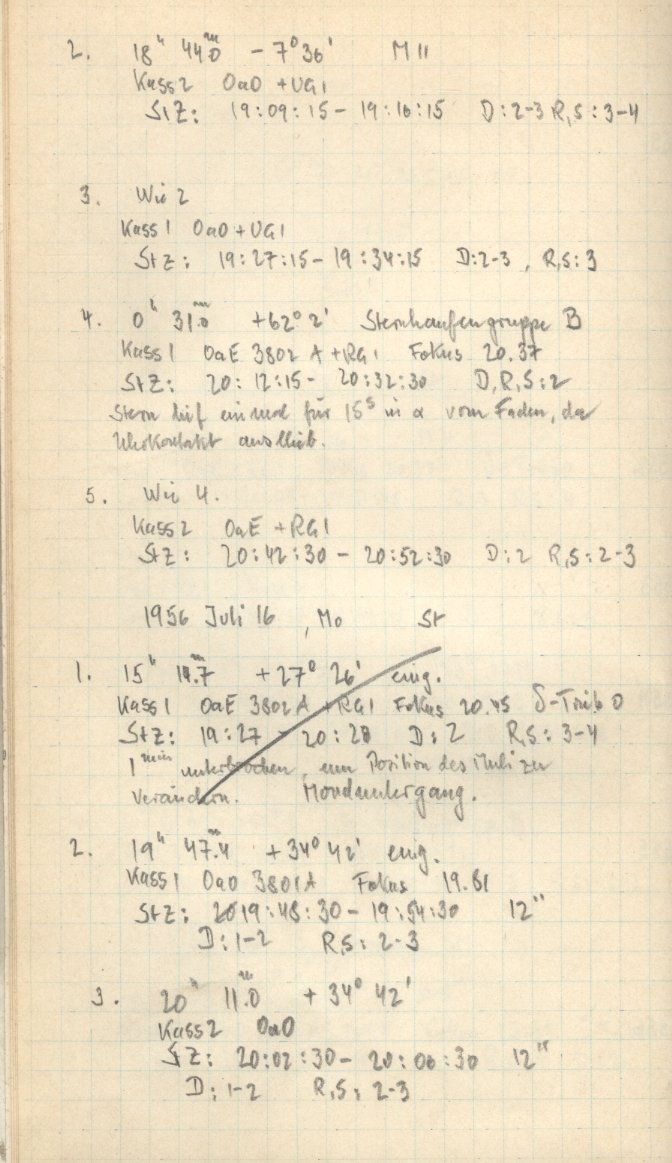 2. 18ʰ 44ᵐ.0 - 7° 36' M 11
Kass 2 OaO + UG1
StZ: 19:09:15 - 19:16:15 D:2-3 R,S:3-4
3. Wie 2
Kass 1 OaO + UG1
StZ: 19:27:15 - 19:34:15 D:2-3, R,S:3
4. 0ʰ 31ᵐ.0 +62° 2' Sternhaufengruppe B
Kass 1 OaE 3802 A + RG1 Fokus 20.37
StZ: 20:12:15 - 20:32:30 D,R,S:2
Stern lief einmal für 15ˢ in α vom Faden, da
Uhrkontakt ausblieb.
5. Wie 4.
Kass 2 OaE + RG1
StZ: 20:42:30 - 20:52:30 D:2 R,S:2-3
1956 Juli 16, Mo St
1. 15ʰ 19ᵐ.7 +27° 26' eing.
Kass 1 OaE 3802 A + RG1 Fokus 20.45 δ-Trieb 0
StZ: 19:27 - 20:28 D:2 R,S:3-4
1ᵐⁱⁿ unterbrochen, um Position des zu
verändern. Monduntergang.
2. 19ʰ 47ᵐ.4 +34° 42' eing.
Kass 1 OaO 3801A Fokus 19.81
StZ: 19:48:30 - 19:54:30 12"
D:1-2 R,S:2-3
3. 20ʰ 11ᵐ.0 +34° 42'
Kass 2 OaO
StZ: 20:02:30 - 20:08:30 12"
D:1-2 R,S:2-3